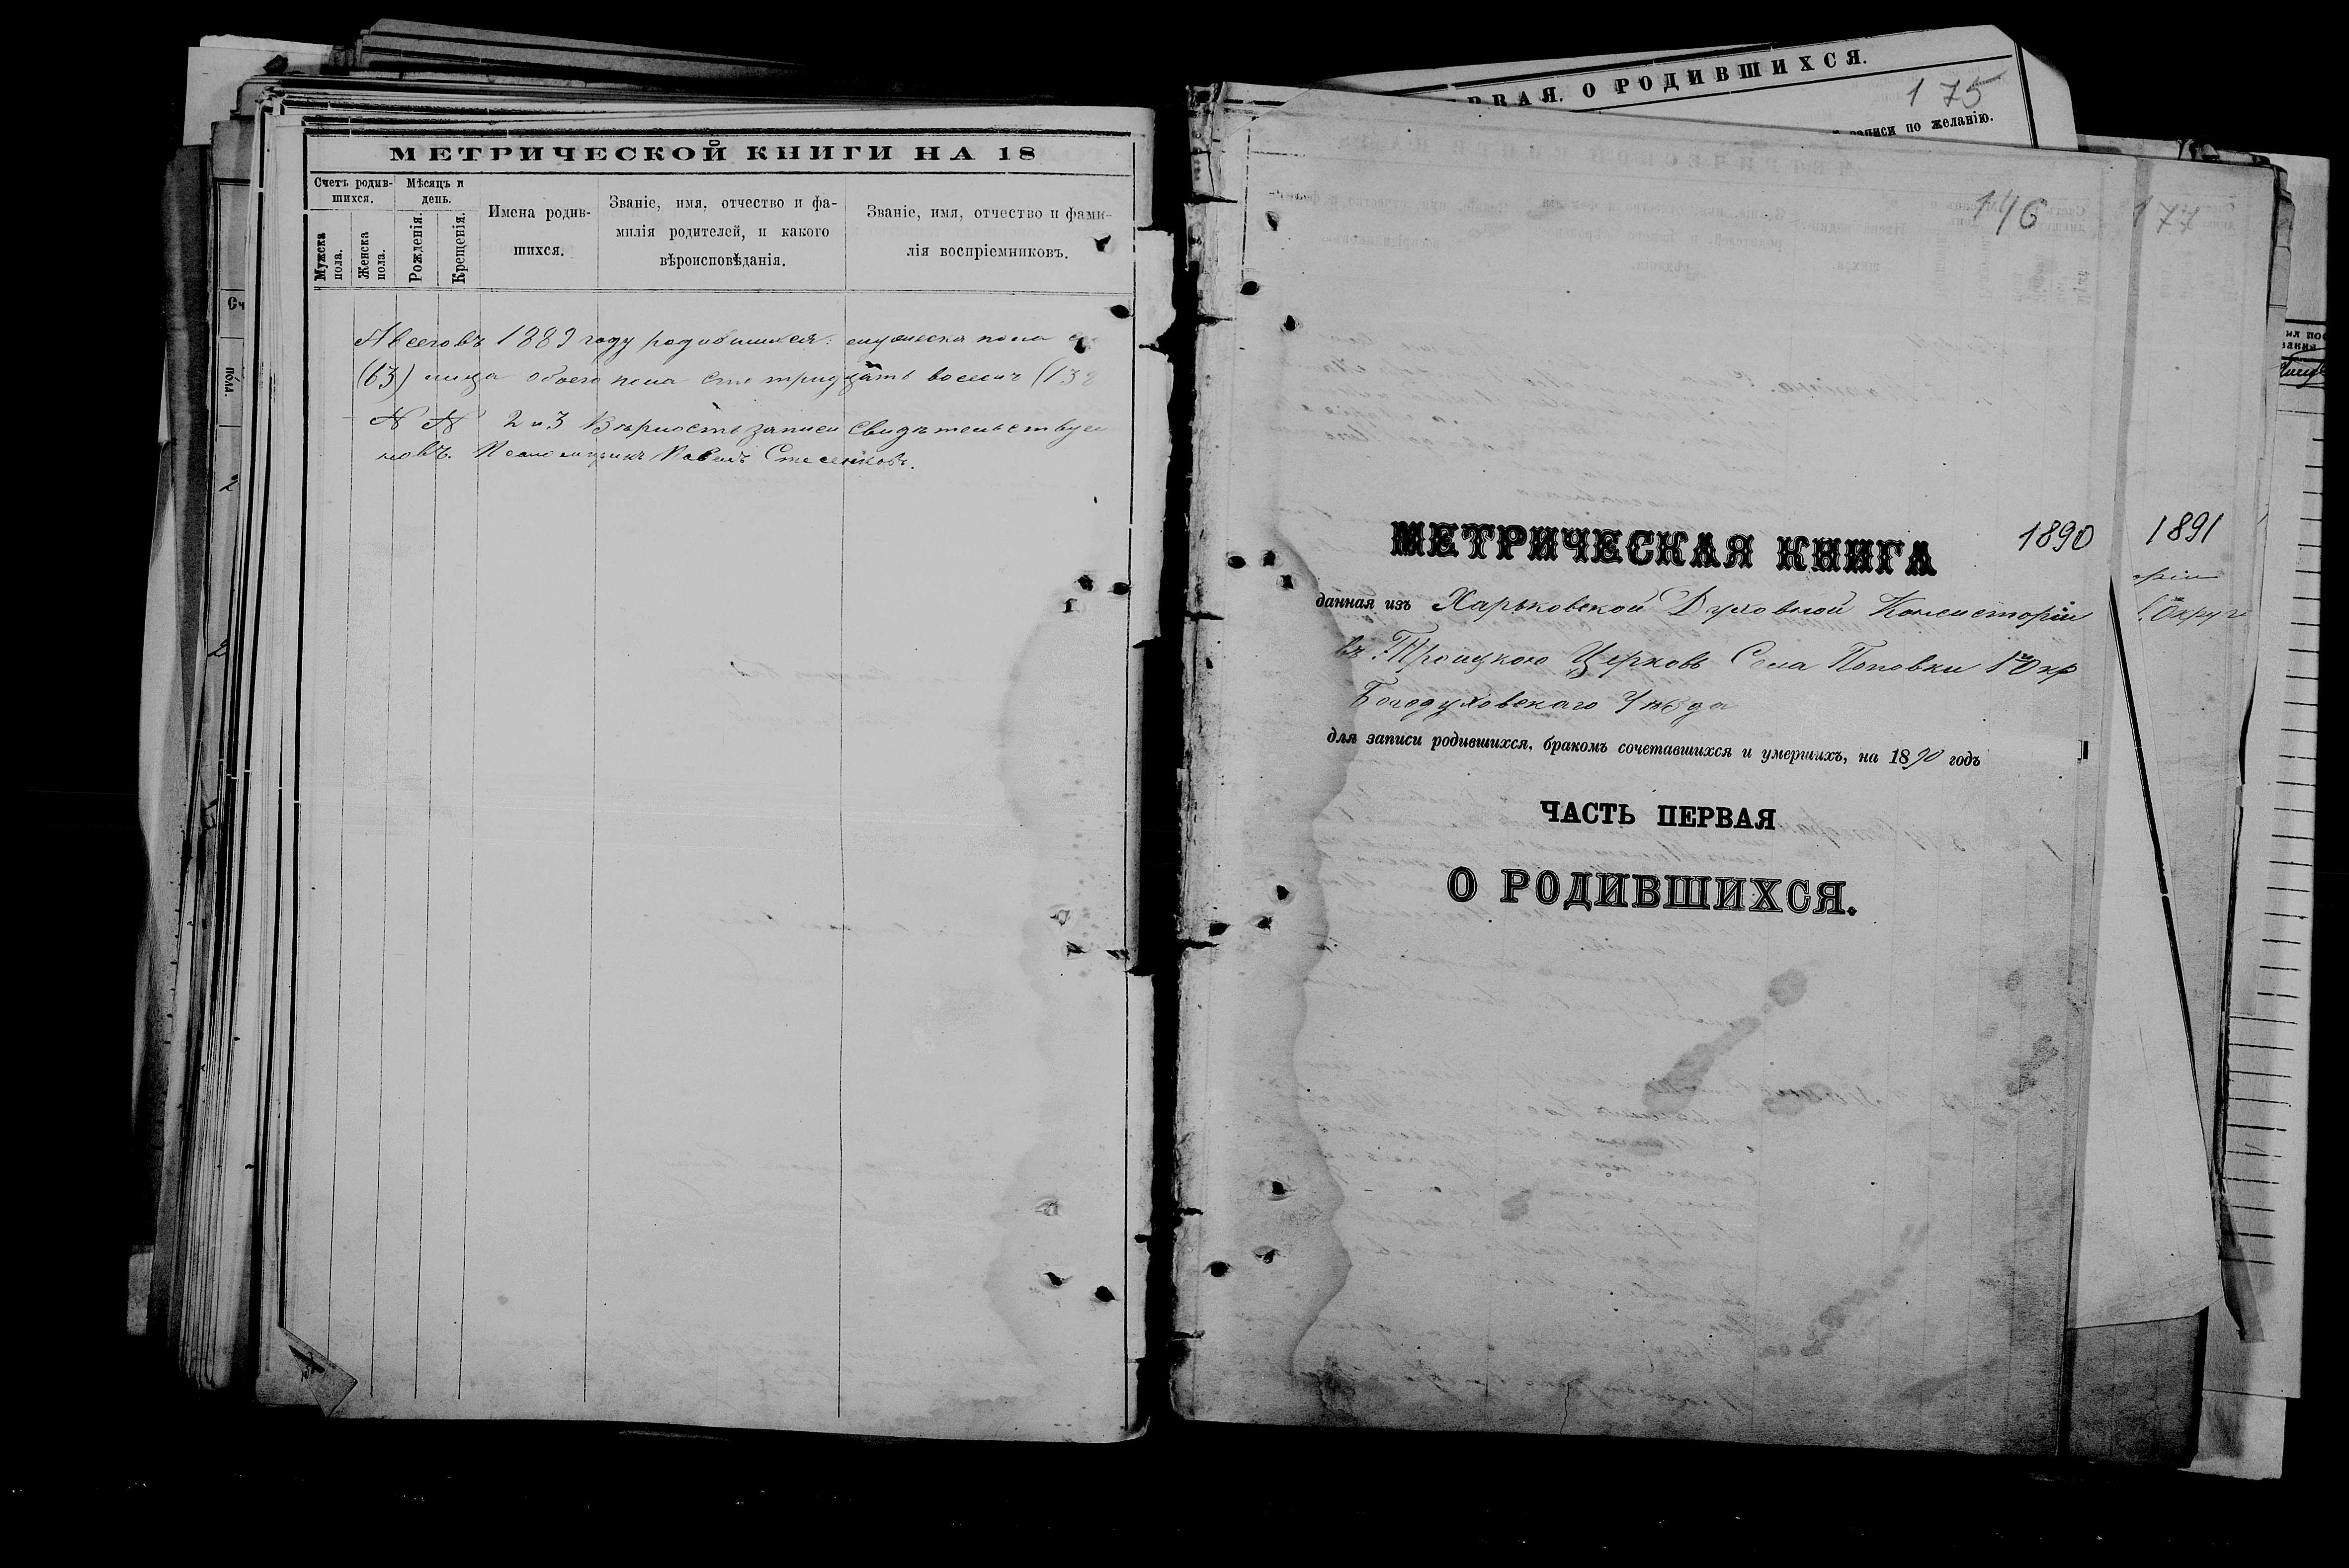 МЕТРИЧЕСКОЙ КНИГИ НА 18
Счетъ родив-
шихся.
Мужска
пола.
Женска
пола.
Мѣсяцъ и
день.
Рожденія.
Крещенія.
Имена родив-
шихся.
Званіе, имя, отчество и фа-
милія родителей, и какого
вѣроисповѣданія.
Званіе, имя, отчество и фами-
лія воспріемниковъ.
А всего въ 1889 году родившихся: мужеска пола
(63) лица обоего пола сто тридцать восемь (138
N N 2 и 3 Вѣрность записи свидѣтельствуе
Псаломщикъ Павелъ
РВАЯ. О РОДИВШИХСЯ.
175
записи по желанію.
146
177
МЕТРИЧЕСКАЯ КНИГА
1890
1891
данная изъ Харьковской Духовной Консисторіи
въ Троицкою Церковь Села Поповки 1 Окр
Богодуховскаго Уѣзда
для записи родившихся, бракомъ сочетавшихся и умершихъ, на 1890 годъ
ЧАСТЬ ПЕРВАЯ
О РОДИВШИХСЯ.